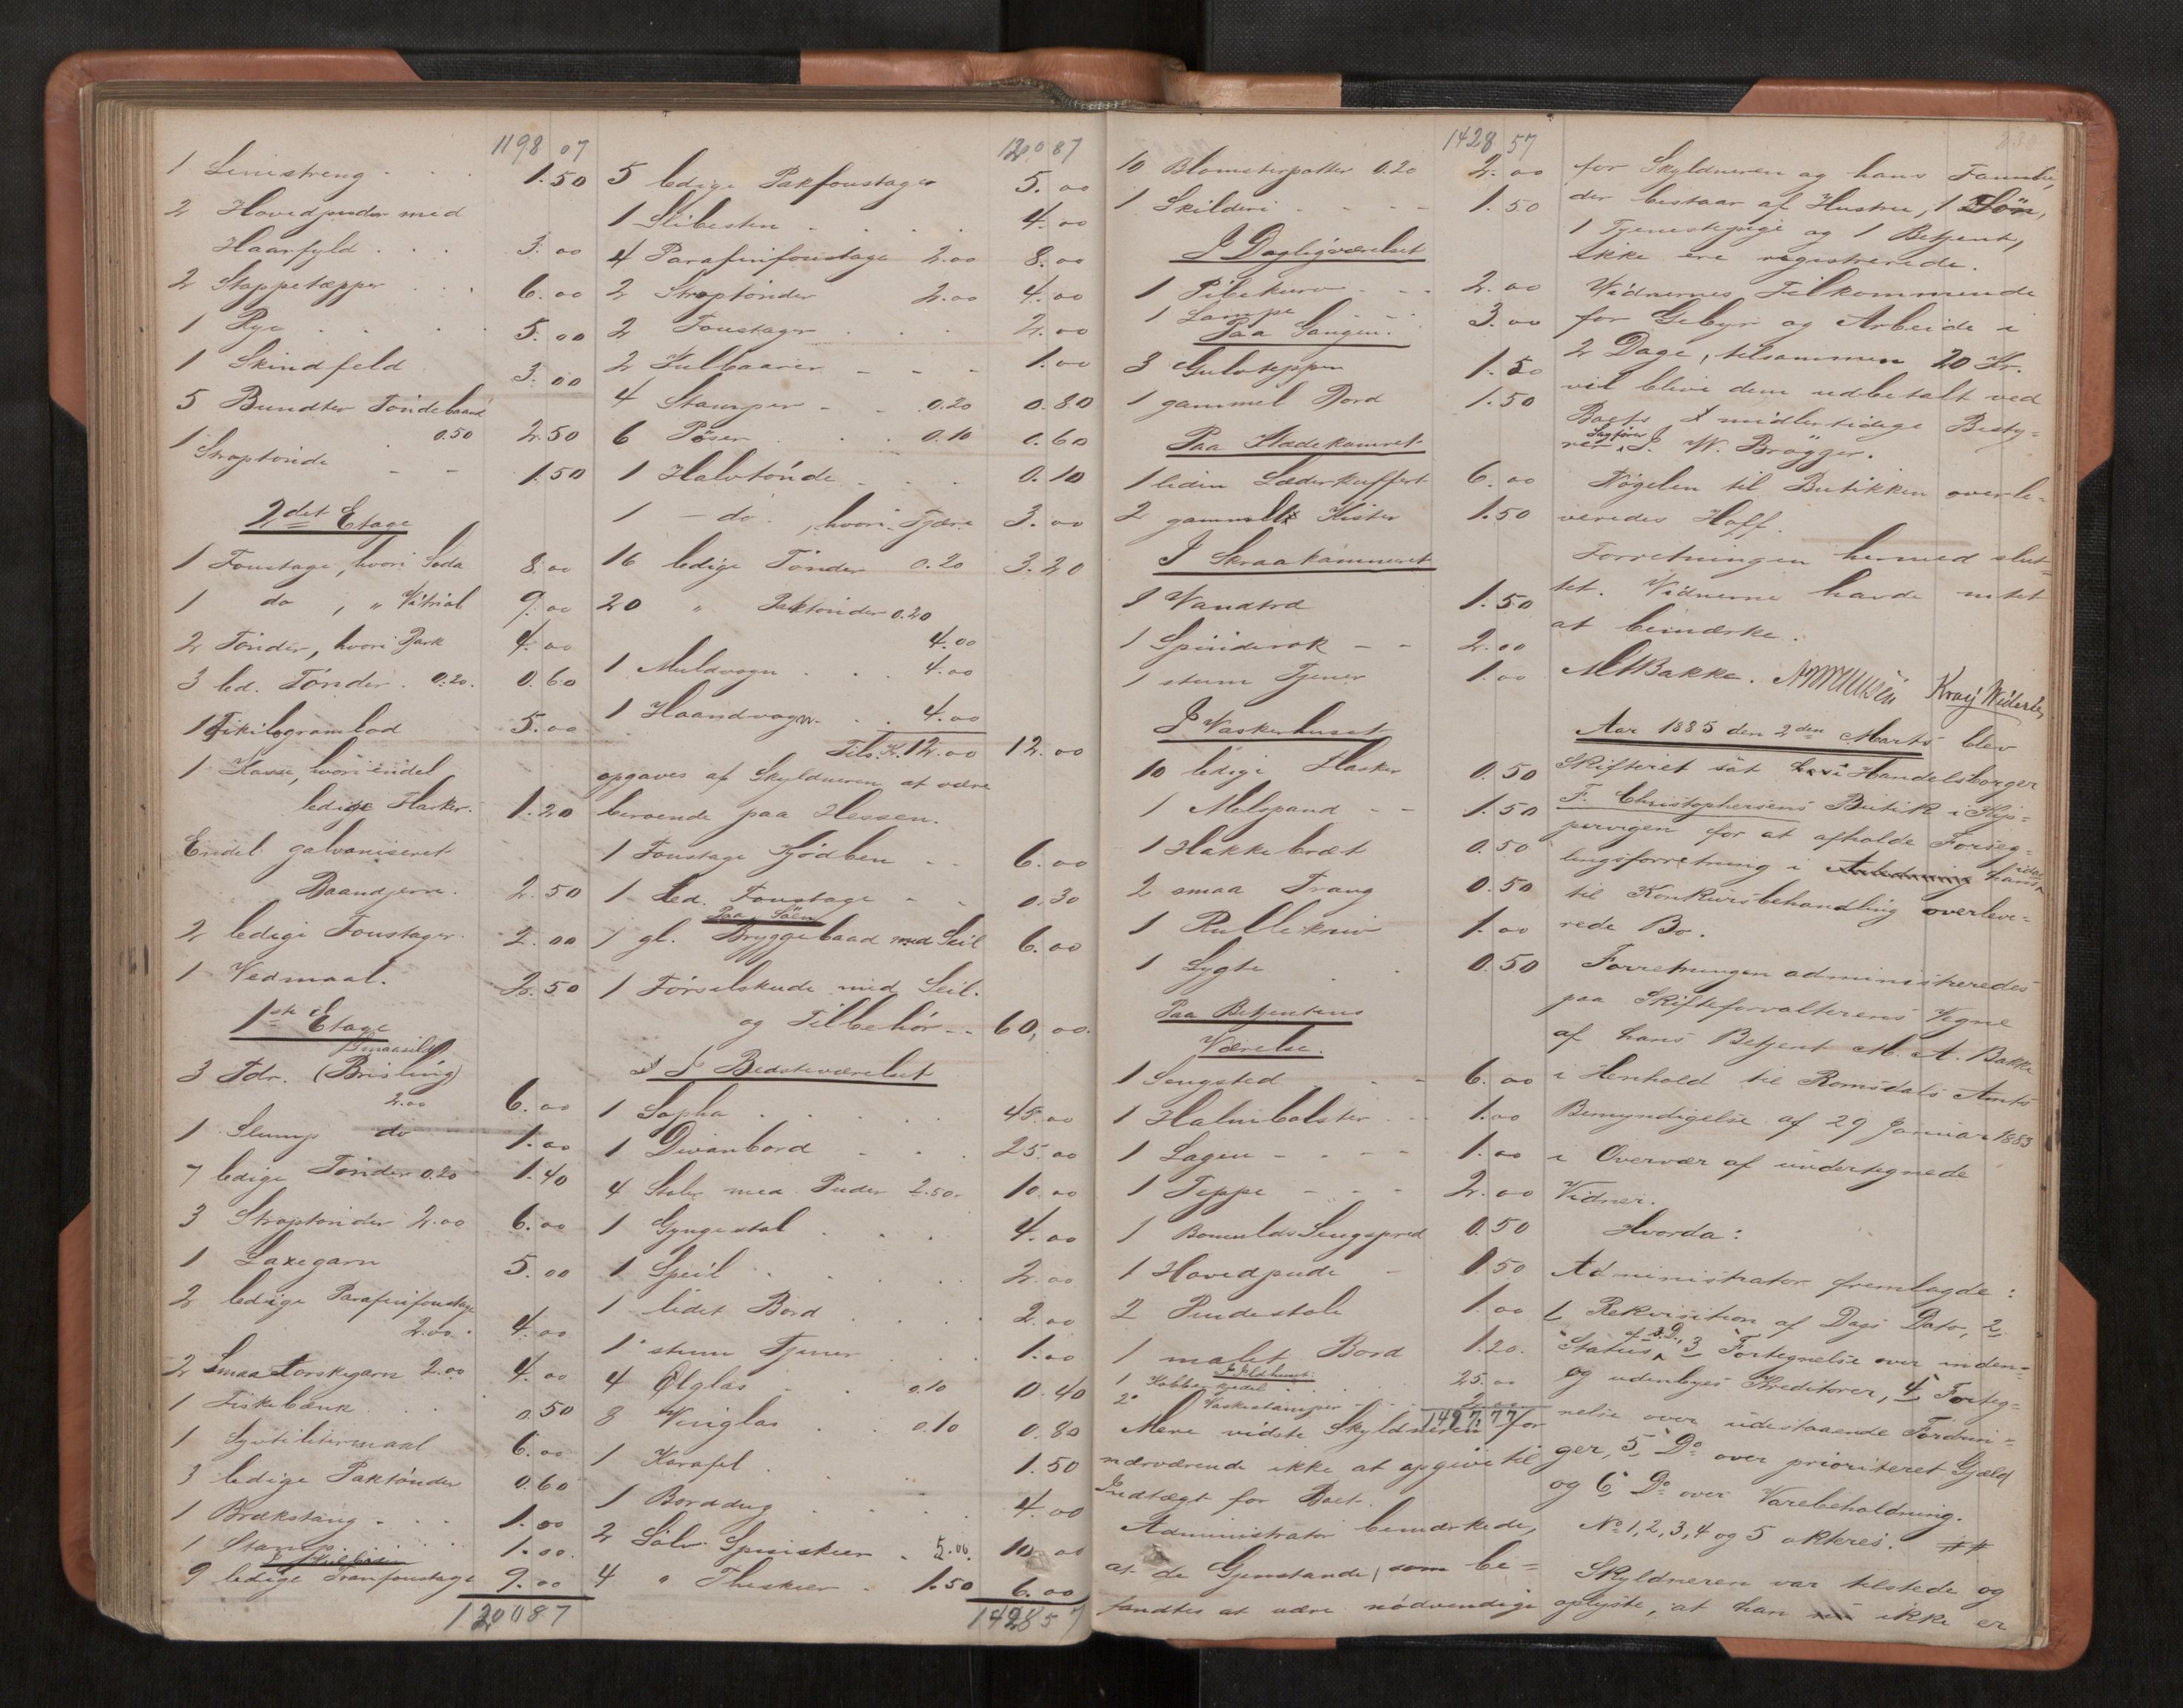 1198 07
1 Linestreng . . . 1.50
2 Hovedpuder med
Haarfyld . . . 3.00
2 Stoppetæpper . . . 6.00
1 Rye . . . 5.00
1 Skindfeld 3.00
5 Bundter Töndebaand
0.50 2.50
1 Straptönde - - 1.50
2det Etage
1 Foustage, hvori Soda 8.00
1 do , " Vitriol 9.00
2 Tönder, hvori Bark 4.00
3 led. Tönder . 0.20. 0.60
1 Tikilogramlod 5.00
1 Kasse, hvori endel
ledige Flasker. 1.20
Endel galvaniseret
Baandjern. 2.50
2 ledige Foustager. 2.00
1 Vedmaal. 2.50
1ste Etage
Smaasild
3 Tdr. (Brisling)
2.00 6.00
1 Slump do 1.00
7 ledige Tönder 0.20 1.40
3 Straptönder 2.00 6.00
1 Laxegarn 5.00
2 ledige Parafinfoustage
2.00. 4.00
2 Smaa Torskegarn 2.00 4.00
1 Fiskebænk . . . 0.50
1 Syvtilitermaal 6.00
3 ledige Paktönder 0.60
1 Brækstang . . . 1.00
1 Stamp . . . . 1.00.
9 ledige Tranfoustage 9.00
120087
12 0087
5 ledige Pakfoustager 5.00
1 Slibesten . . . . 4.00
4 Parafinfoustage 2.00 8.00
2 Straptönder 2.00 4.00
2 Foustager . . . 2.00
2 Hulbaarer - - - 1.00
4 Stamper - - 0.20 0.80
6 Pöser . . . 0.10 0.60
1 Halvtönde . . . 0.10
1 - do. , hvori Tjære 3.00
16 ledige Tönder 0.20 3.20
20 " Paktönder 0.20
4.00
1 Muldvogn . . . 4.00
1 Haandvogn . . 4.00
Tils. K. 12.00 12.00
opgaves af Skyldneren at være
beroende paa Hessen.
1 Foustage Kjödben - - 6.00
1 led. Foustage - - 0.30
Paa Söen
1 gl. Bryggebaad med Seil 6.00
1 Förselskude med Seil.
og Tilbehör -- 60,00.
I Bedsteværelset
1 Sopha . . . . . 45.00
1 Divanbord - - . 25.00
4 Stole med Puder 2.50. 10.00
1 Gyngestol . . . 4.00
1 Speil . . . . . 2.00
1 lidet Bord . . . 2.00
1 stum Tjener . . 1.00
4 Ölglas - - 0.10 0.40
8 Vinglas . . 0.10 0.80
1 Karafel . . . 1.50
1 Borddug . . . . 4.00
2 Sölv Spiseskeer . 5.00. 10.00
4 " Theskeer . 1.50 6.00
142857
1428 57
10 Blomsterpotter 0.20 2.00
1 Skilderi - - - - 1.50
I Dagligværelset
1 Pibekurv - - - 2.00
1 Lampe - - 3.00
Paa Gangen.
3 Gulvtepper 1.50
1 gammel Bord 1.50
Paa Klædekamret
1 liden Læderkuffert 6.00
2 gamle Kister 1.50
I Skraakammeret
1 Vandtrd 1.50
1 Spinderok - - 2.00
1 stum Tjener 1.00
I Vaskerhuset
10 ledige Flasker 0.50
1 Melspand - - 1.50
1 Hakkebræt 0.50
2 smaa Traug 0.50
1 Rullekniv 1.00
1 Lygte . . 0.50
Paa Betjentens
Værelse.
1 Sengsted - - - 6.00
1 Halmbolster - - 1.00
1 Lagen - - - - 1.00
1 Teppe - - - 2.00
1 Bomulds Sengspred 0.50
1 Hovedpude - 1.50
2 Pindestole 1.00
1 malet Bord 1.20.
I Ildhuset:
1 Kobberkjedel . . . . 25.00
2 Vaskestamper - - - 2.00
1497.77
Mere vidste Skyldneren for
nærværende ikke at opgive til
Indtægt for Boet.
Administrator bemærkede,
at de Gjenstande, som be=
fandtes at være nödvendige
for Skyldneren og hans Familie,
der bestaar af Hustru, 1 Sön,
1 Tjenestepige og 1 Betjent,
ikke ere registrerede.
Vidnernes Tilkommende
for Gebyr og Arbeide i
2 Dage, tilsammen 20 Kr.
vil blive dem udbetalt ved
Boets midlertidige Besty=
rer, Sagförer J. W. Brögger.
Nögelen til Butikken overle=
veredes Hoff.
Forretningen hermed slut=
tet. Vidnerne havde intet
at bemærke.
M A Bakke.
Aar 1885 den 2den Marts blev
Skifteret sat i Handelsborger
F. Christophersens Butik i Kip=
pervigen for at afholde Forseg=
lingsforretning i hans idag
til Konkursbehandling overleve=
rede Bo.
Forretningen administreredes
paa Skifteforvalterens Vegne
af hans Betjent M. A. Bakke
i Henhold til Romsdals Amts
Bemyndigelse af 29 Januar 1883
i Overvær af undertegnede
Vidner.
Hvorda:
Administrator fremlagde:
1, Rekvisition af Dags Dato, 2,
Status af s.D., 3, Fortegnelse over inden=
og udenbyes Kreditorer, 4, Forteg=
nelse over udestaaende Fordrin=
ger, 5, Do over prioriteret Gjæld
og 6, Do over Varebeholdning.
No 1, 2, 3, 4 og 5 akteres. ##
Skyldneren var tilstede og
oplyste, at han ikke er